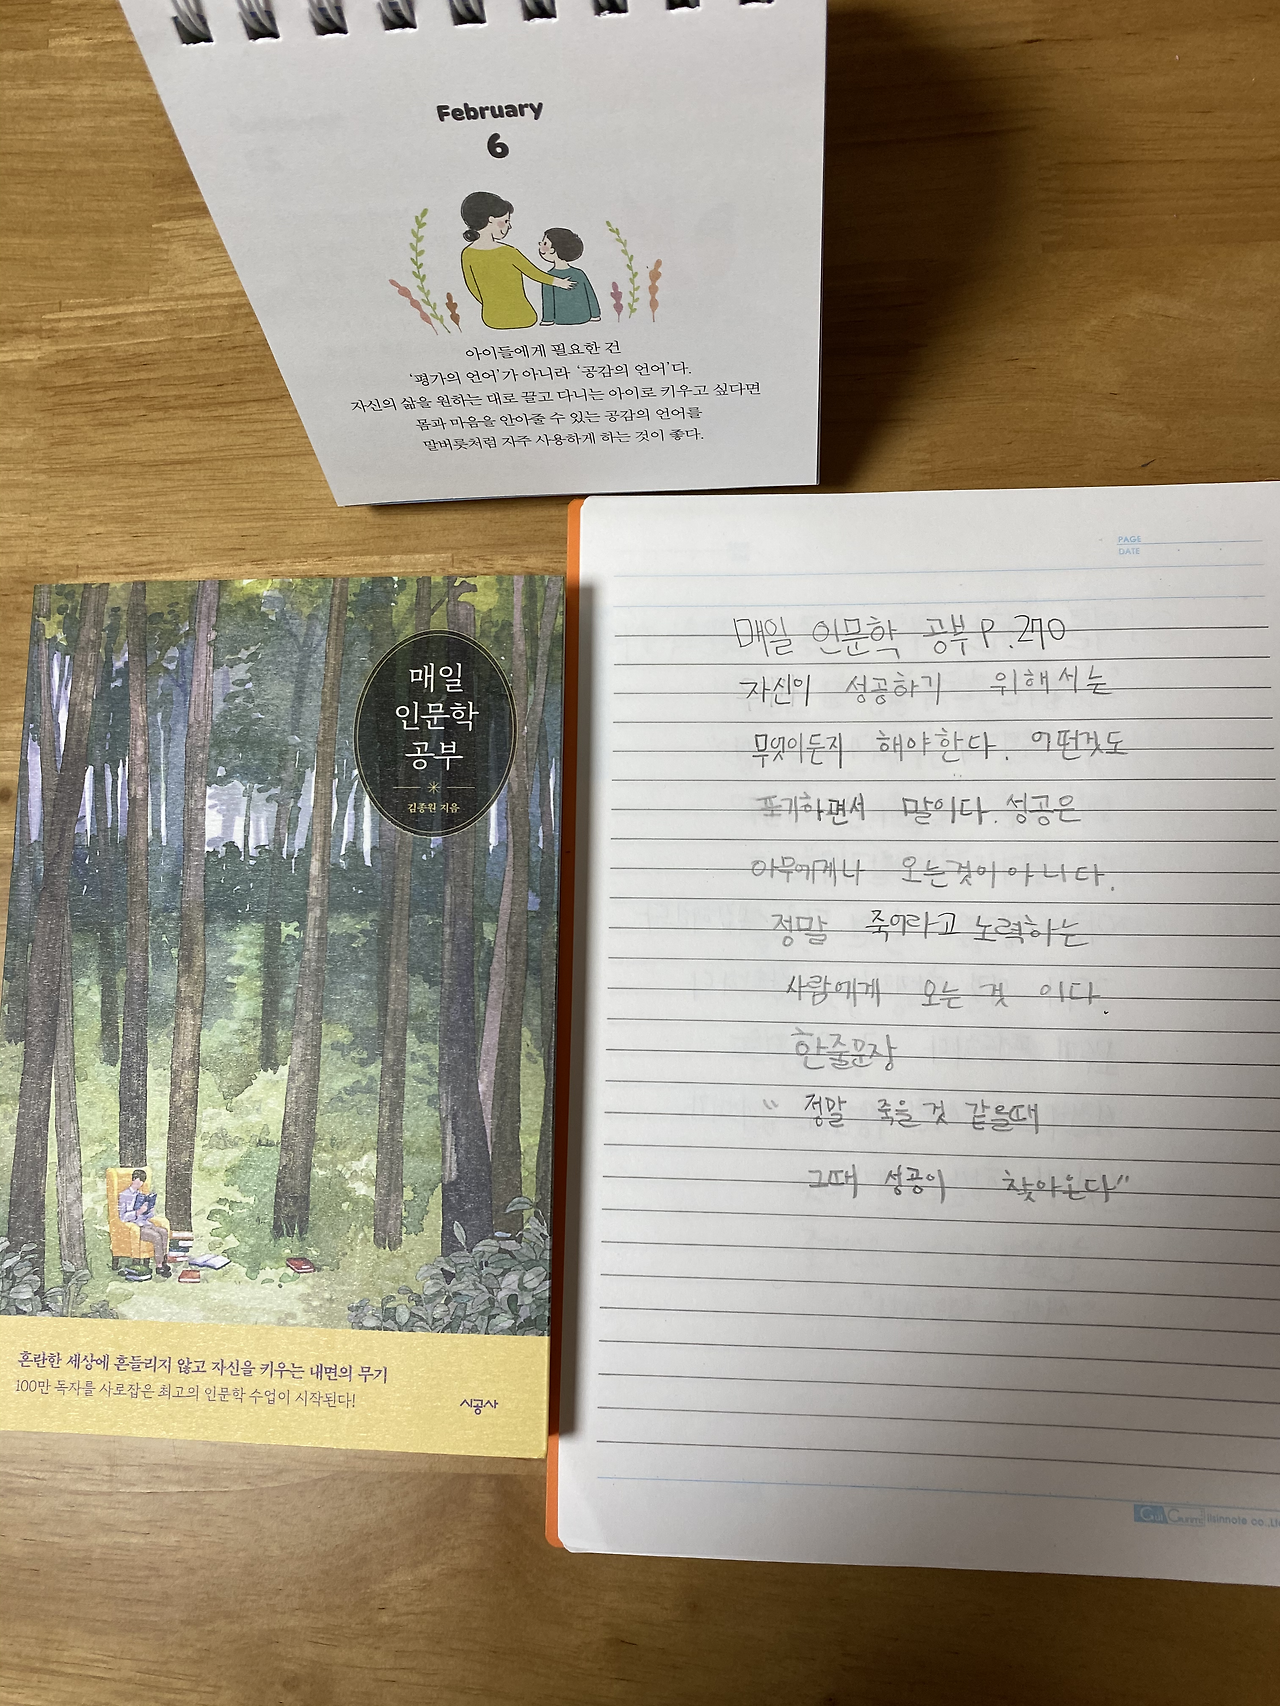 February
6
아이들에게 필요한 건
'평가의 언어'가 아니라 '공감의 언어'다.
자신의 삶을 원하는 대로 끌고 다니는 아이로 키우고 싶다면
몸과 마음을 안아줄 수 있는 공감의 언어를
말버릇처럼 자주 사용하게 하는 것이 좋다.
매일
인문학
공부
김종원 지음
혼란한 세상에 흔들리지 않고 자신을 키우는 내면의 무기
100만 독자를 사로잡은 최고의 인문학 수업이 시작된다!
시공사
PAGE
DATE
매일 인문학 공부 P.270
자신이 성공하기 위해서는
무엇이든지 해야한다. 어떤것도
포기하면서 말이다. 성공은
아무에게나 오는것이아니다.
정말 죽어라고 노력하는
사람에게 오는 것 이다.
한줄문장
"정말 죽을것 같을때
그때 성공이 찾아온다"
ilsinnote co.,